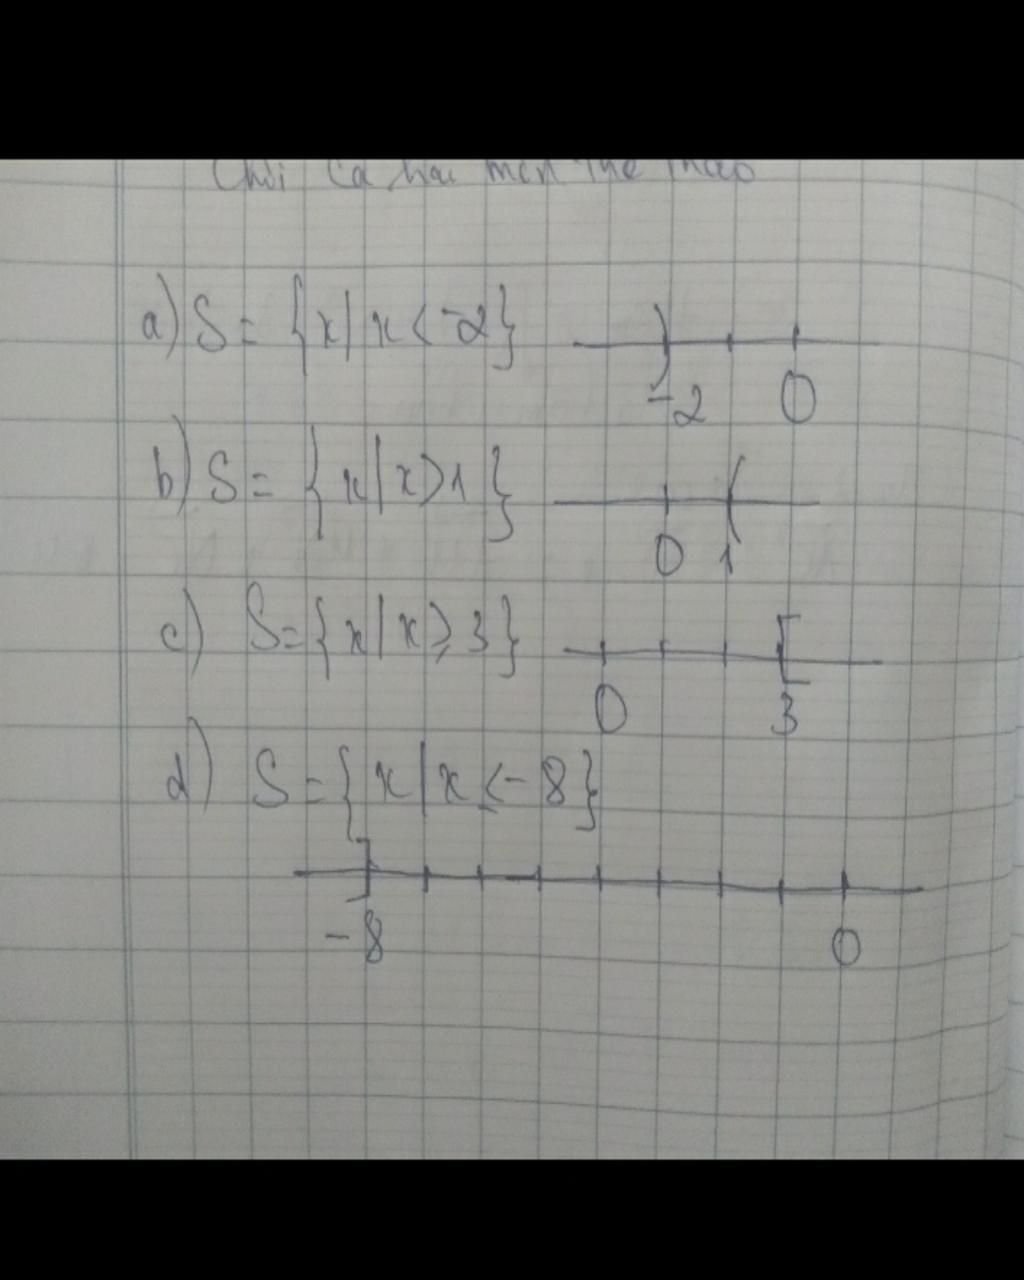 Chơi cả hai môn thể thao
a) S = {x | x < -2}
-2 0
b) S = {x | x > 1}
0 1
c) S = {x | x ⩾ 3}
0 3
d) S = {x | x ⩽ -8}
-8 0